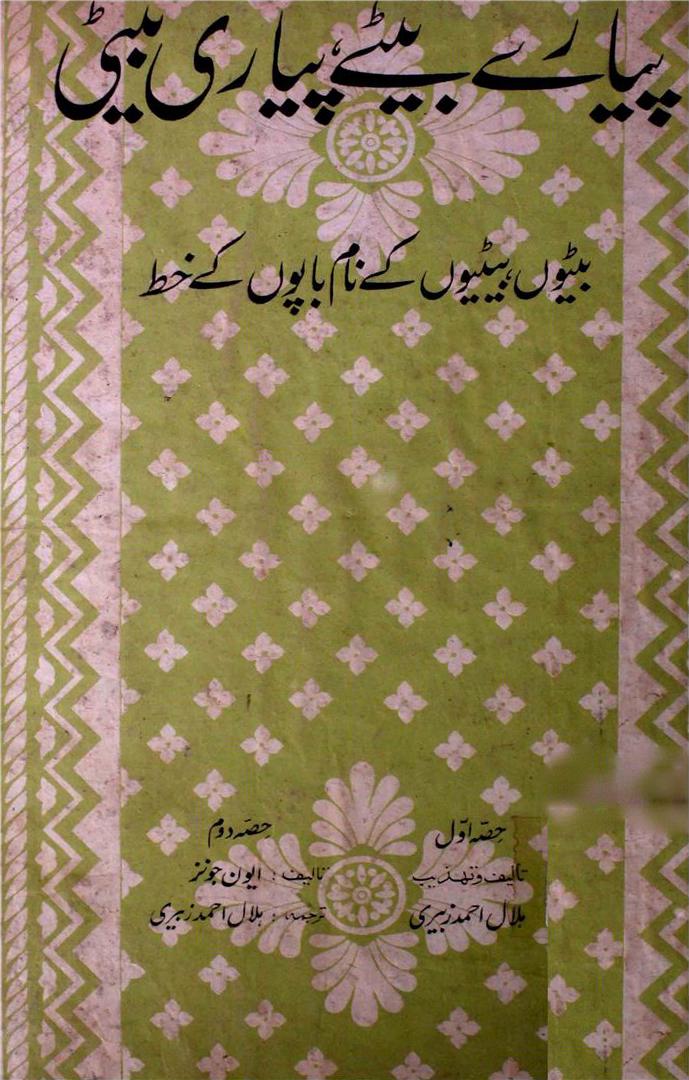 پیارے بیٹے، پیاری بیٹی
بیٹوں، بیٹیوں کے نام باپوں کے خط
حصّہ اوّل
تالیف و تہذیب
ہلال احمد زبیری
حصّہ دوم
تالیف : ایون جونز
ترجمہ : ہلال احمد زبیری